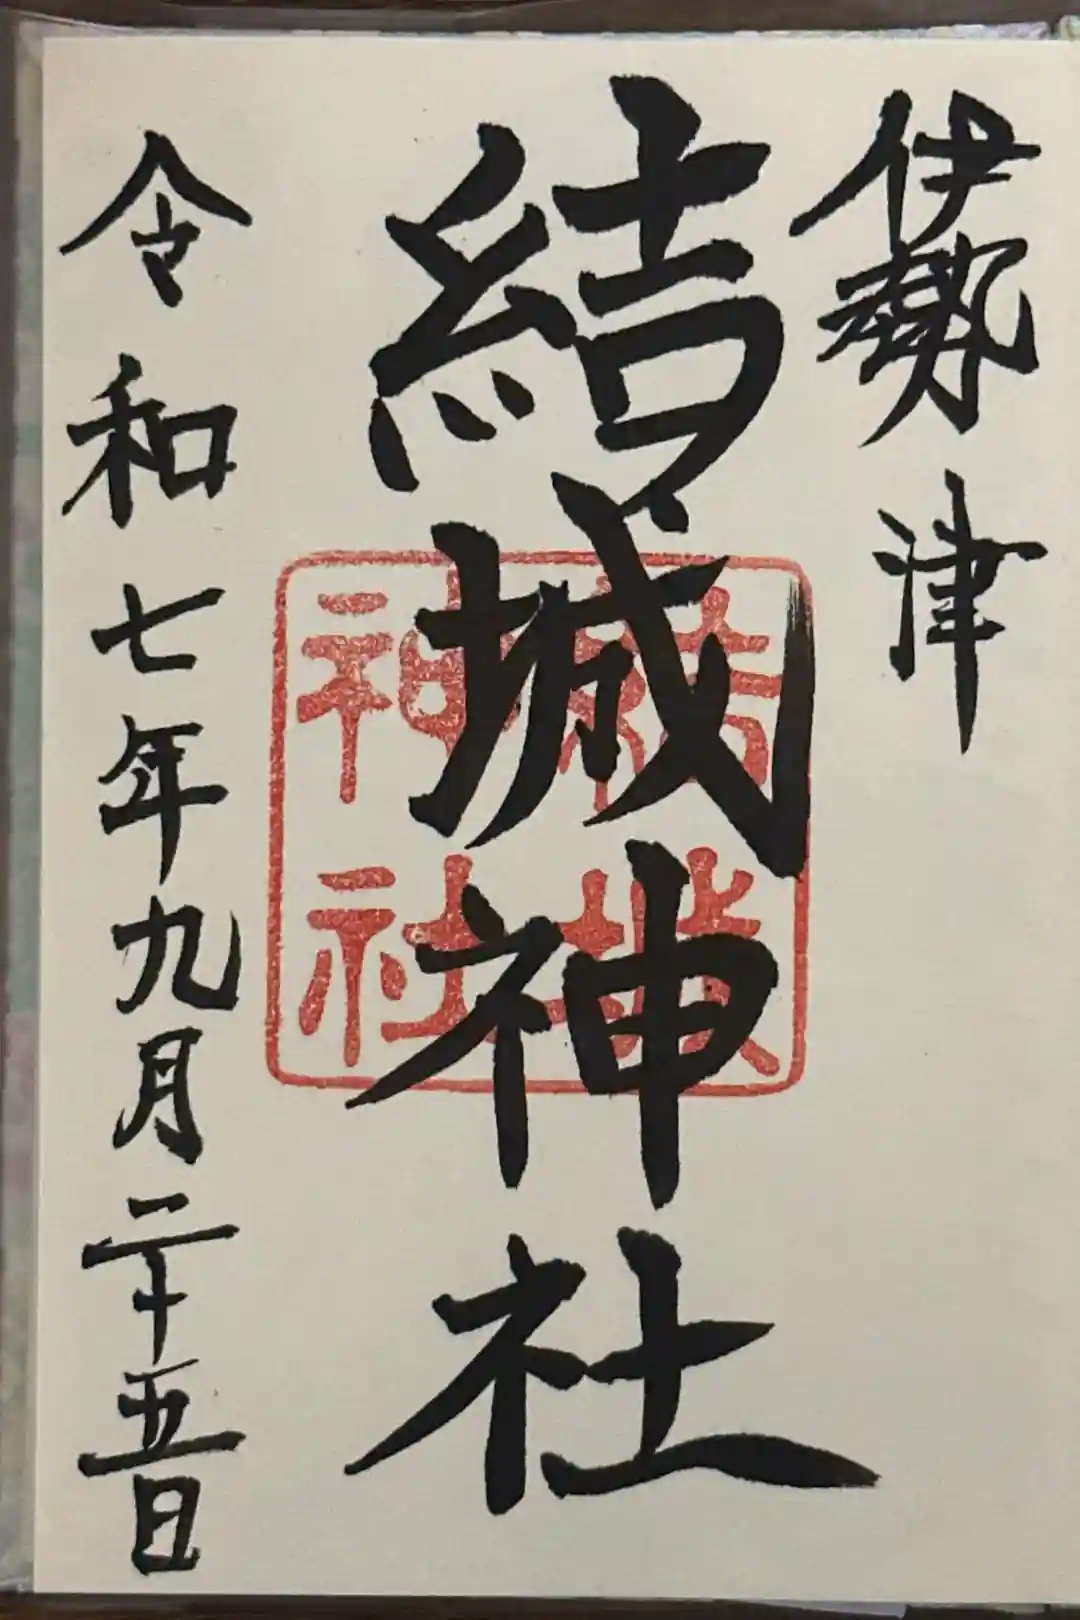 伊勢津
結城神社
結城神社
令和七年九月二十五日